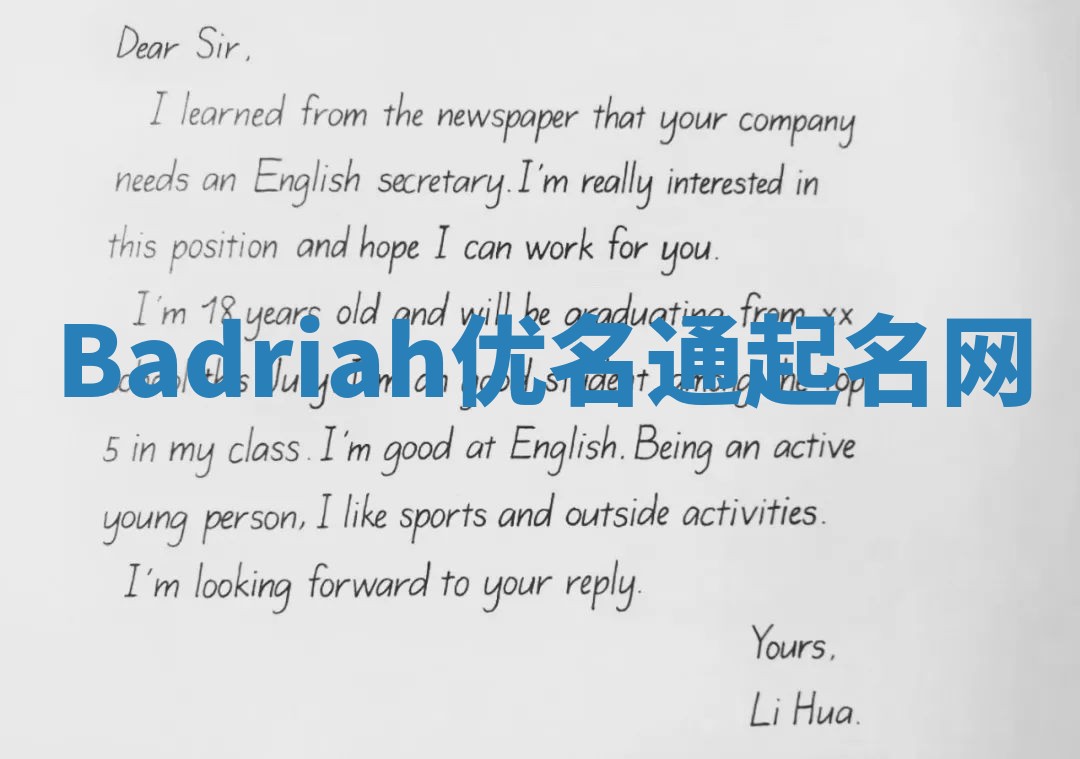 Dear Sir,
I learned from the newspaper that your company
needs an English secretary. I'm really interested in
this position and hope I can work for you.
I'm 18 years old and will be graduating from xx
Badriah优名通起名网
school this July. I'm an good student, among the top
5 in my class. I'm good at English. Being an active
young person, I like sports and outside activities.
I'm looking forward to your reply.
Yours,
Li Hua.